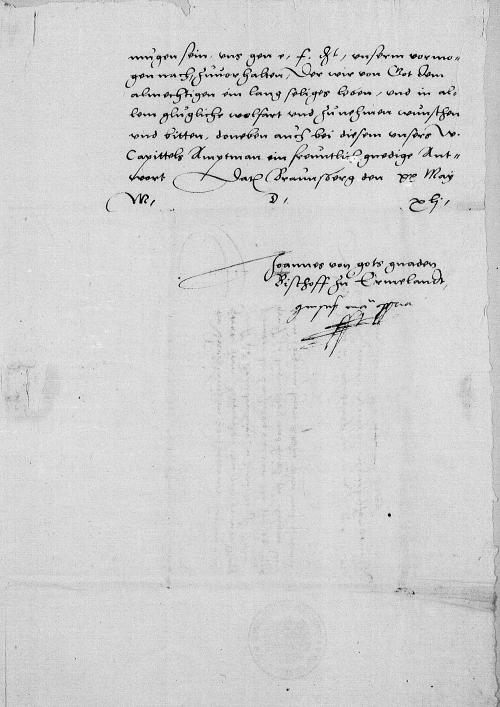 mugen sein, uns gen e. f. dht, unserm vormo-
gen nach zuuorhalten, Der wir von Got dem
almechtigen ein lang seliges leben, und in al-
lem glugliche wolfart und zunehmen wunschen
und bitten, doneben auch bei diesem unsers w.
Capittels Amptman ein freuntlich gnedige Ant-
wort Dat Braunsberg den xx May
M. D. xlj.
Joannes von gots gnaden
Bischoff zu Ermelandt,
manu ppria